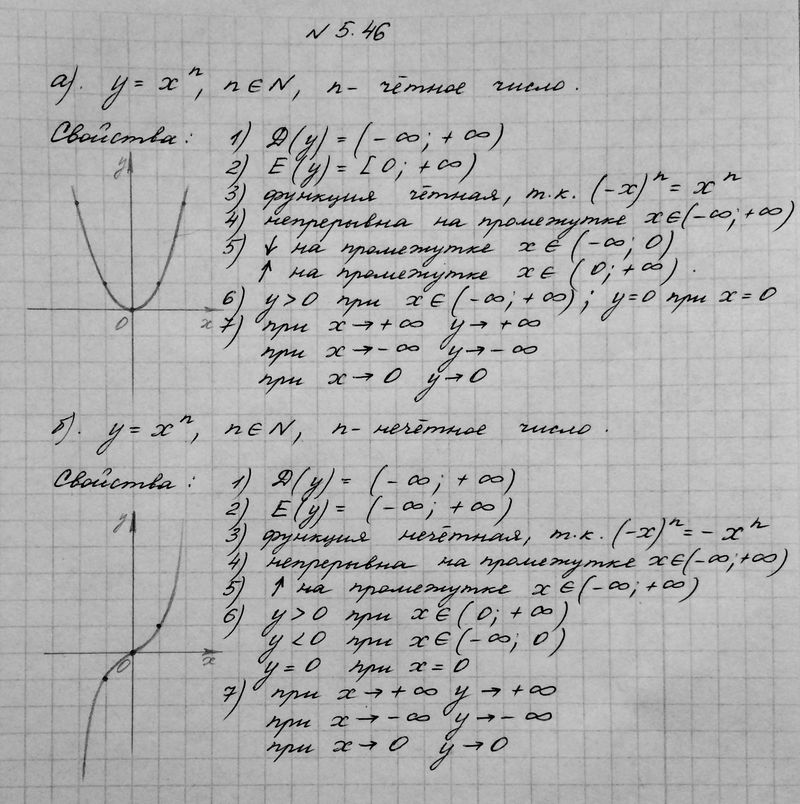 N 5.46
а). y = xⁿ, n ∈ N, n – чётное число.
Свойства: 1) D(y) = (–∞; +∞)
2) E(y) = [0; +∞)
3) функция чётная, т.к. (–x)ⁿ = xⁿ
4) непрерывна на промежутке x ∈ (–∞; +∞)
5) ↓ на промежутке x ∈ (–∞; 0)
↑ на промежутке x ∈ (0; +∞).
6) y > 0 при x ∈ (–∞; +∞); y = 0 при x = 0
7) при x → +∞ y → +∞
при x → –∞ y → –∞
при x → 0 y → 0
y
0 x
б). y = xⁿ, n ∈ N, n – нечётное число.
Свойства: 1) D(y) = (–∞; +∞)
2) E(y) = (–∞; +∞)
3) функция нечётная, т.к. (–x)ⁿ = – xⁿ
4) непрерывна на промежутке x ∈ (–∞; +∞)
5) ↑ на промежутке x ∈ (–∞; +∞)
6) y > 0 при x ∈ (0; +∞)
y < 0 при x ∈ (–∞; 0)
y = 0 при x = 0
7) при x → +∞ y → +∞
при x → –∞ y → –∞
при x → 0 y → 0
y
0 x